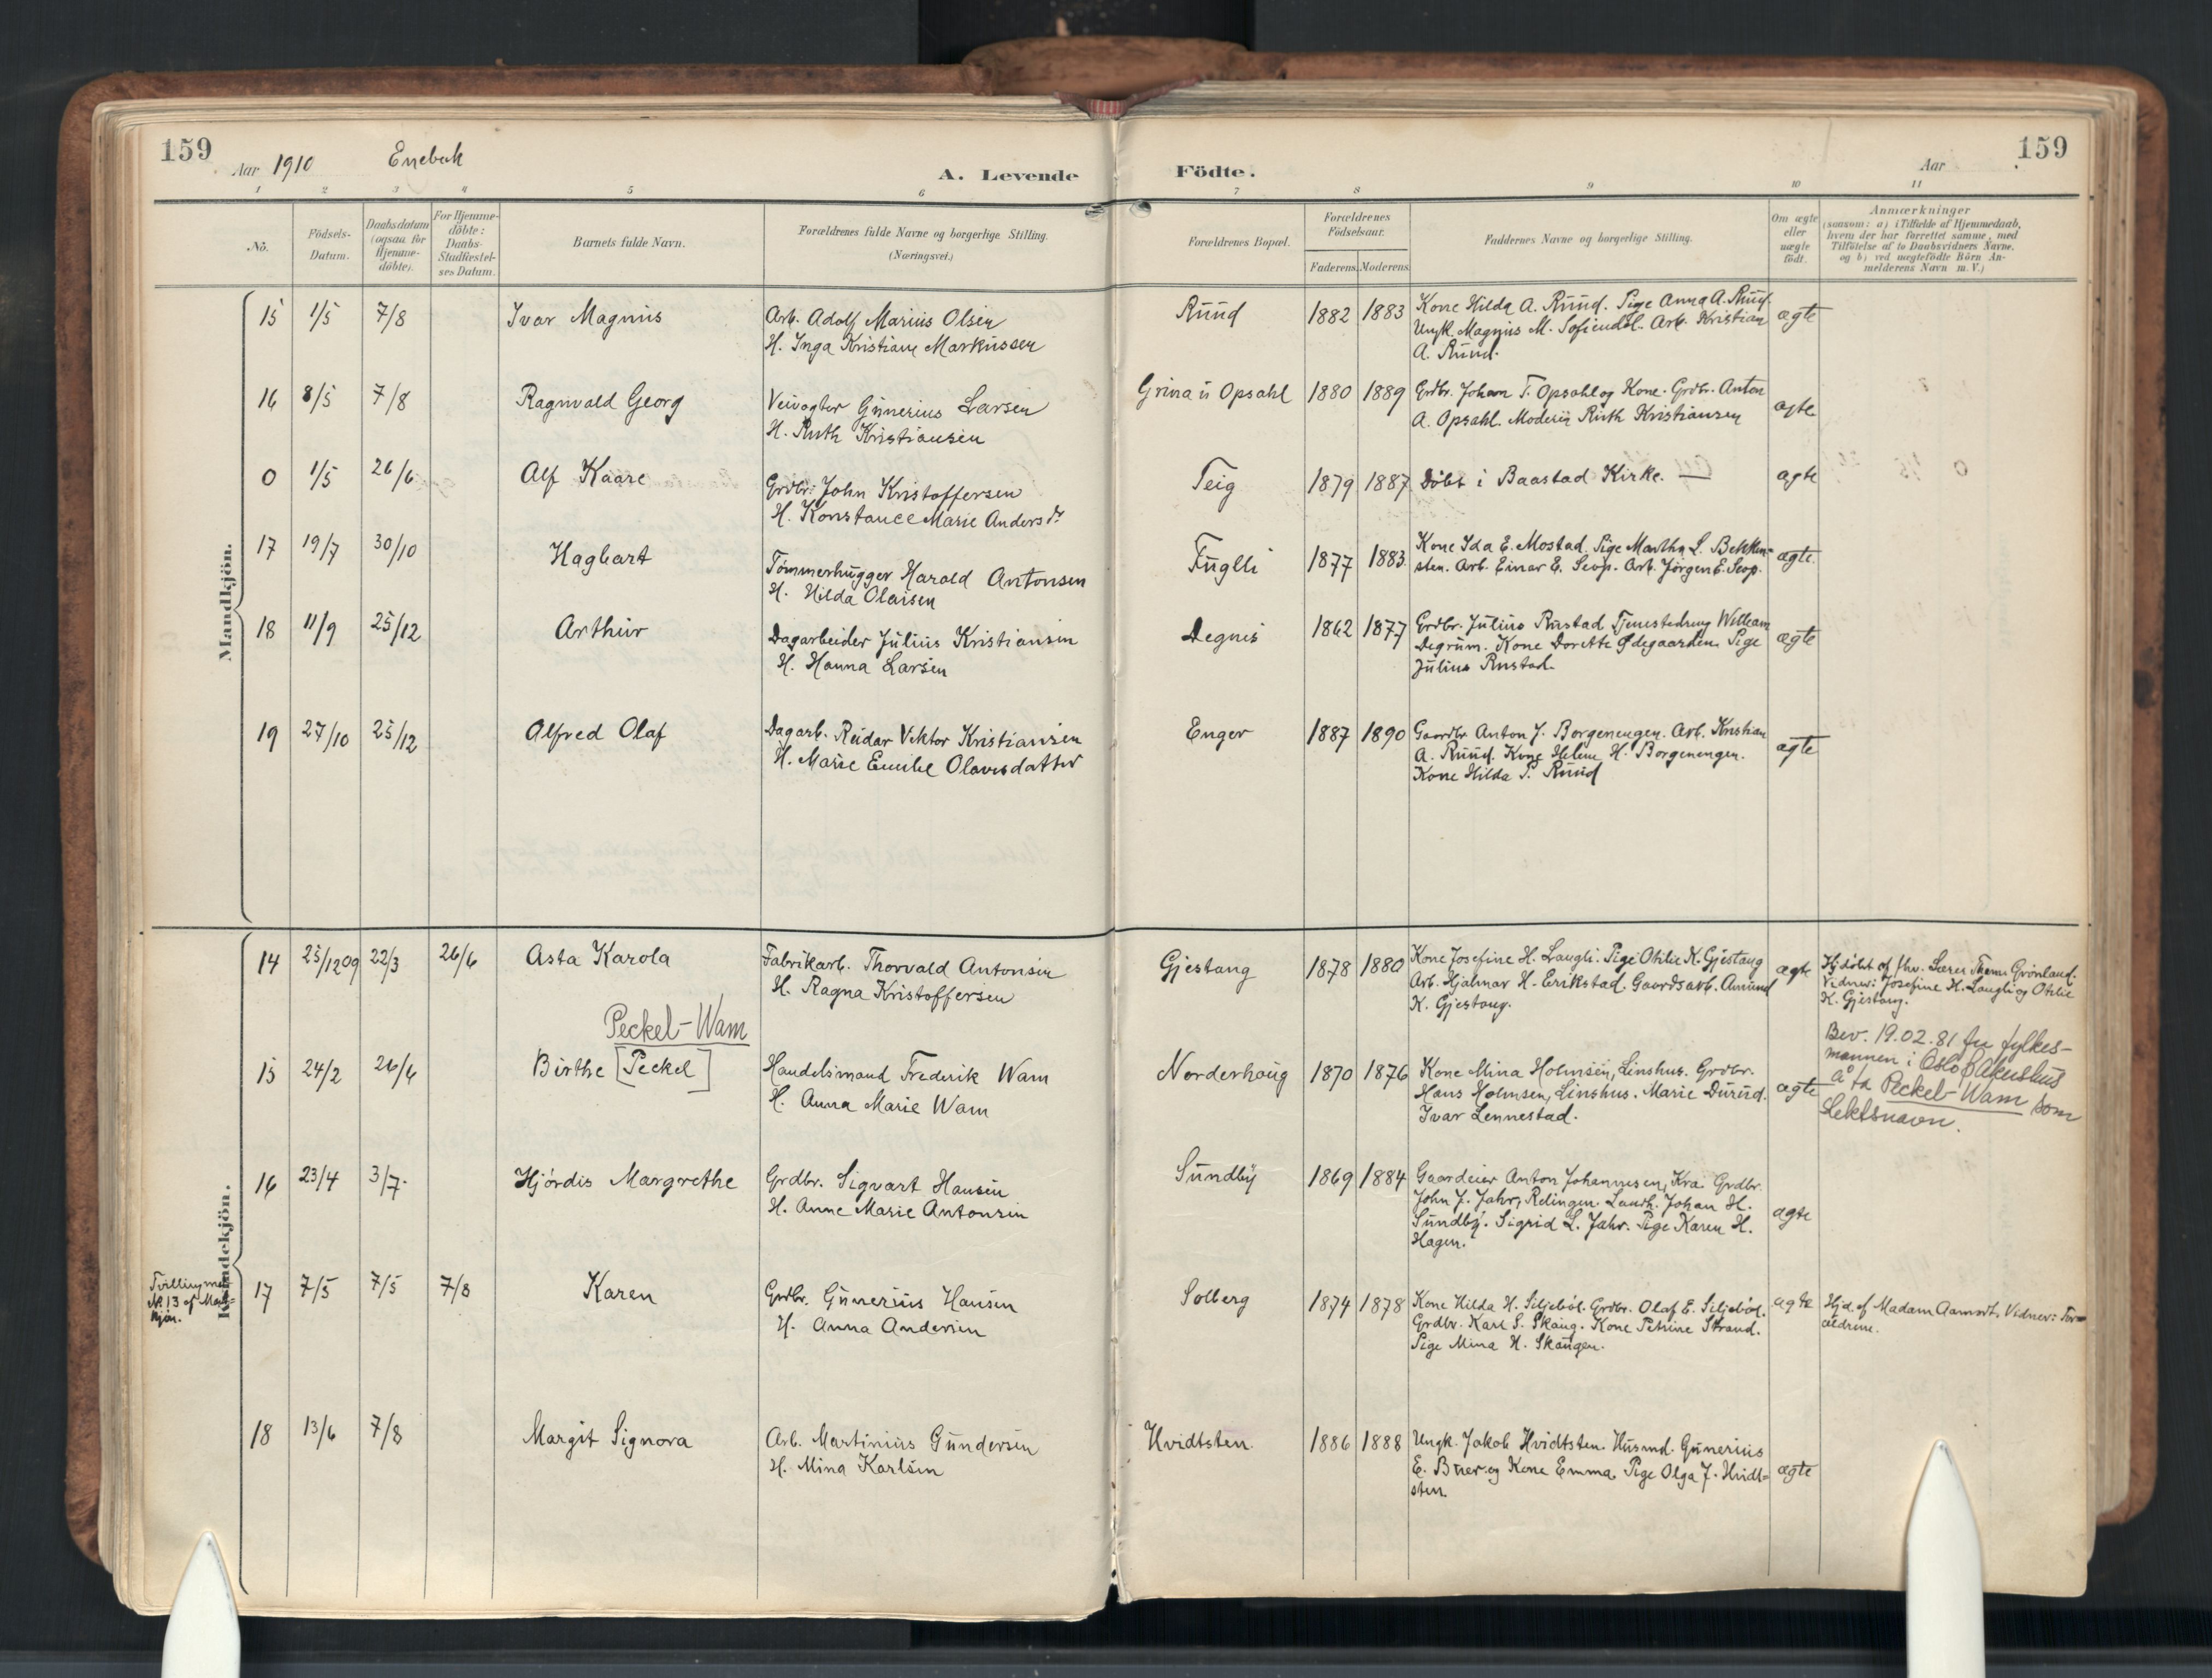 159
Aar 1910 Enebak
A. Levende Födte.
Aar
159
1 2 3 4 5 6 7 8 9 10 11
No.
Födsels-
Datum.
Daabsdatum
(ogsaa for
Hjemme-
döbte).
For Hjemme-
döbte:
Daabs-
Stadfæstel-
ses Datum.
Barnets fulde Navn.
Forældrenes fulde Navne og borgerlige Stilling.
(Næringsvei.)
Forældrenes Bopæl.
Forældrenes
Födselsaar.
Faderens. Moderens.
Faddernes Navne og borgerlige Stilling.
Om ægte
eller
uægte
födt.
Anmærkninger
(saasom: a) i Tilfælde af Hjemmedaab,
hvem der har forrettet samme, med
Tilföielse af to Daabsvidners Navne,
og b) ved uægtefödte Börn An-
melderens Navn m. V.)
Mandkjön.
15 1/5 7/8 Ivar Magnus
Arb. Adolf Marius Olsen
H. Inga Kristiane Markussen
Ruud 1882 1883
Kone Hilda A. Ruud. Pige Anna A. Ruud.
Ungk. Magnus M. Sofiendal. Arb. Kristian
A. Ruud.
ægte
16 8/5 7/8 Ragnvald Georg
Veivogter Gunerius Larsen
H. Ruth Kristiansen
Grina u Opsahl 1880 1889
Grdbr. Johan T. Opsahl og Kone. Grdbr. Anton
A. Opsahl. Moderen Ruth Kristiansen
ægte
0 1/5 26/6 Alf Kaare
Grdbr. John Kristoffersen
H. Konstance Marie Andersdr
Teig 1879 1887
Döbt i Baastad Kirke. —
ægte
17 19/7 30/10 Hagbart
Tømmerhugger Harald Antonsen
H. Hilda Olaisen
Fuglli 1877 1883
Kone Ida E. Mostad. Pige Martha L. Bekken-
sten. Arb. Einar E. Seop. Arb. Jørgen E. Seop.
ægte.
18 11/9 25/12 Arthur
Dagarbeider Julius Kristiansen
H. Hanna Larsen
Degnes 1862 1877
Grdbr. Julius Rustad Tjenestedreng William
Degrum. Kone Dorette Ødegaarden. Pige
Julius Rustad.
ægte
19 27/10 25/12 Alfred Olaf
Dagarb. Reidar Viktor Kristiansen
H. Marie Emilie Olavesdatter
Enger 1887 1890
Gaardbr Anton J. Borgenengen. Arb. Kristian
A. Ruud. Kone Helene H. Borgenengen.
Kone Hilda P. Ruud
ægte
Kvindekjön.
14 25/12 09 22/3 26/6 Asta Karola
Fabrikarb. Thorvald Antonsen
H. Ragna Kristoffersen
Gjestang 1878 1880
Kone Josefine H. Laugli. Pige Otilie K. Gjestang
Arb. Hjalmar H. Erikstad. Gaardsarb. Amund
K. Gjestang.
ægte
Hjdöbt af fhv. Lærer Grönland.
Vidner: Josefine H. Laugli og Otilie
K. Gjestang.
Peckel-Wam
15 24/2 26/6 Birthe [Peckel]
Handelsmand Frederik Wam
H. Anna Marie Wam
Norderhaug 1870 1876
Kone Mina Holmsen, Linshus. Grdbr.
Hans Holmsen, Linshus. Marie Durud.
Ivar Lennestad.
ægte
Bev. 19.02.81 fra fylkes-
mannen i Oslo & Akershus
å ta Peckel-Wam som
slektsnavn.
16 23/4 3/7. Hjördis Margrethe
Grdbr. Sigvart Hansen
H. Anne Marie Antonsen
Sundby 1869 1884
Gaardeier Anton Johannesen, Kra. Grdbr.
John J. Jahr, Relingen. Landh. Johan H.
Sundby. Sigrid L. Jahr. Pige Karen H.
Hagen.
ægte
Tvilling med
No. 13 af Mand-
kjön.
17 7/5 7/5 7/8 Karen
Grdbr. Gunerius Hansen
H. Anna Andersen
Solberg 1874 1878
Kone Hilda H. Siljeböl. Grdbr. Olaf E. Siljeböl.
Grdbr. Karl S. Skaug. Kone Petrine Strand.
Pige Mina H. Skaugen.
ægte
Hjd. af Madam Aamodt. Vidner: For-
ældrene.
18 13/6 7/8 Margit Signora
Arb. Martinius Gundersen
H. Mina Karlsen
Hvidtsten 1886 1888
Ungk. Jakob Hvidtsten. Husmd. Gunerius
E. Buer og Kone Emma. Pige Olga J. Hvidt-
sten.
ægte